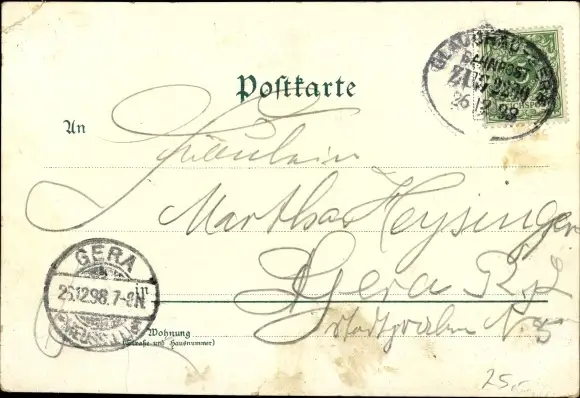 Postkarte
GLAUCHAU-GERA
BAHNPOST
ZUG 2230
26 12 98
An
Fräulein
Martha Heysinger
Gera R.j.L
Stadtgraben N.
GERA
26.12.98.7-8N.
(REUSS) 
Wohnung
(Straße und Hausnummer)
25,-